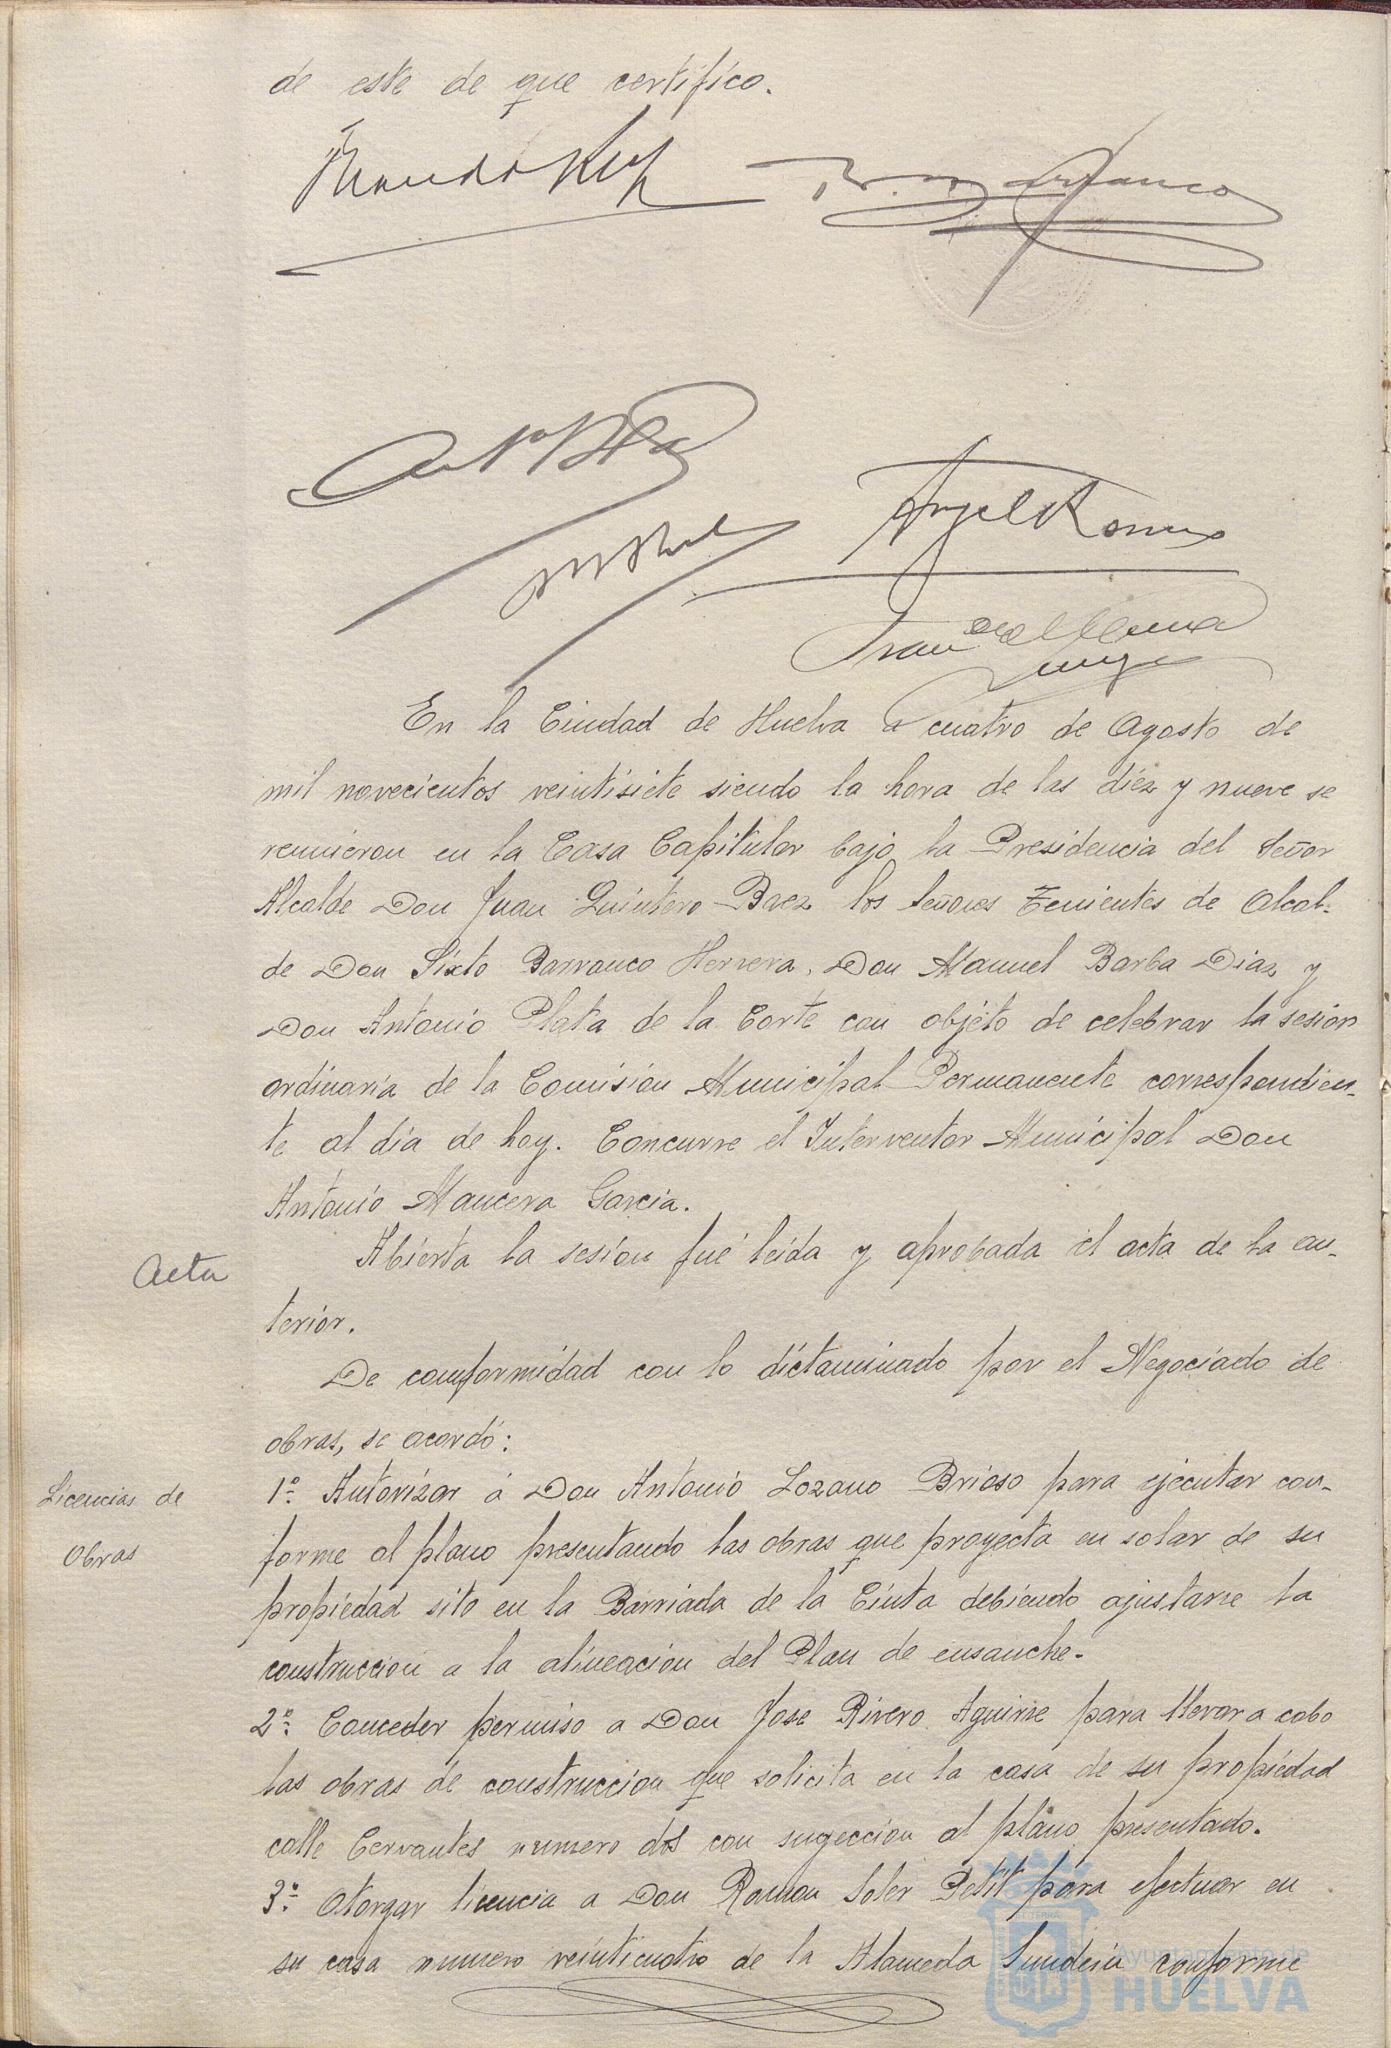 de este de que certifico.
Angel Romero
En la Ciudad de Huelva a cuatro de Agosto de
mil novecientos veintisiete siendo la hora de las diez y nueve se
reunieron en la Casa Capitular bajo la Presidencia del Señor
Alcalde Don Juan Quintero Baez los Señores Tenientes de Alcal-
de Don Sixto Barranco Herrera, Don Manuel Barba Diaz y
Don Antonio Plata de la Corte con objeto de celebrar la sesion
ordinaria de la Comision Municipal Permanente correspondien-
te al dia de hoy. Concurre el Interventor Municipal Don
Antonio Mancera Garcia.
Acta
Abierta la sesion fué leida y aprobada el acta de la an-
terior.
De conformidad con lo dictaminado por el Negociado de
obras, se acordó:
Licencias de
Obras
1º- Autorizar á Don Antonio Lozano Brioso para ejecutar con-
forme al plano presentando las obras que proyecta en solar de su
propiedad sito en la Barriada de la Cinta debiendo ajustarse la
construccion a la alineacion del Plan de ensanche.
2º- Conceder permiso a Don Jose Rivero Aguirre para llevar a cabo
las obras de construccion que solicita en la casa de su propiedad
calle Cervantes numero dos con sugeccion al plano presentado.
3º- Otorgar licencia a Don Ramon Soler Petit para efectuar en
su casa numero veinticuatro de la Alameda Sundeim conforme
Ayuntamiento de
HUELVA